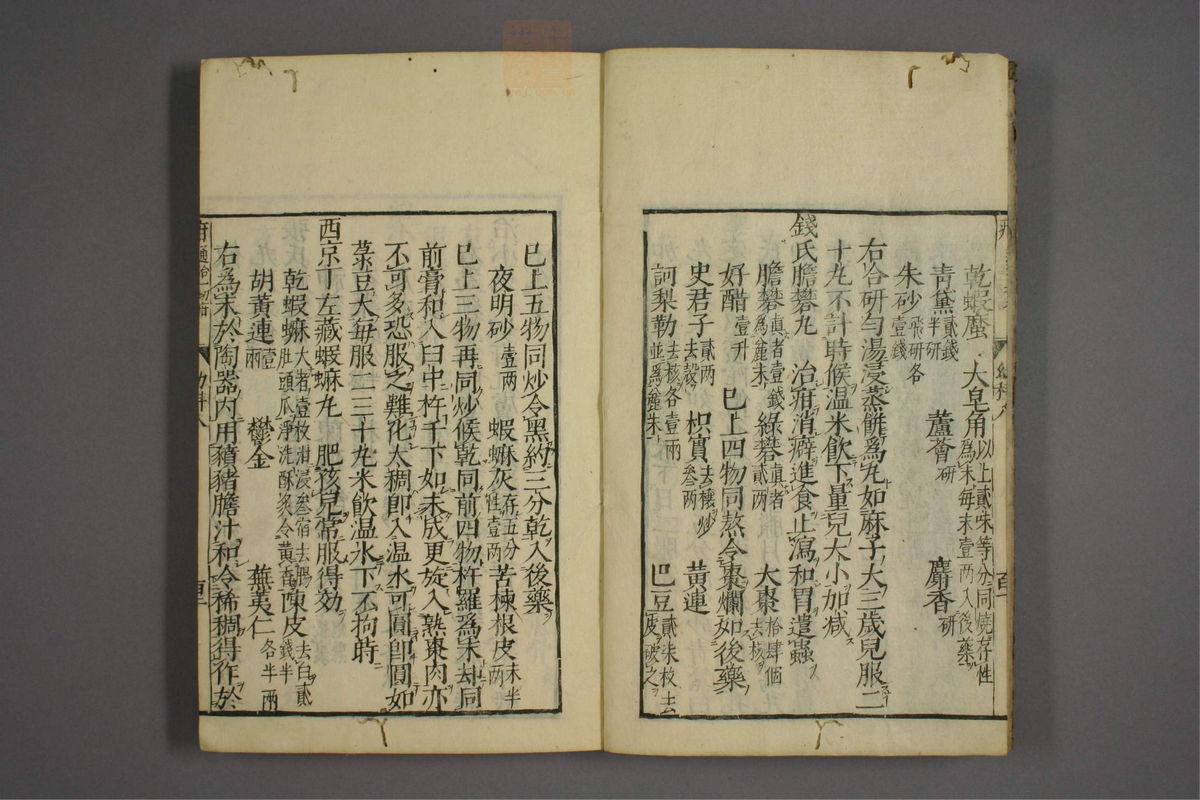 乾蝦蟆 大皂角以上貳味等分同燒存性為末每末壹兩入後藥
青黛貳錢半研 蘆薈研 麝香研
朱砂飛研各壹錢
右合研勻湯浸蒸餅為丸如麻子大三歲兒服二
十丸不計時候温米飲下量兒大小加减
錢氏膽礬丸 治疳消癖進食止瀉和胃遣蟲
膽礬真者壹錢為麄末 綠礬真者貳兩 大棗拾肆個去核
好醋壹升 已上四物同熬令棗爛如後藥
史君子貳兩去殼 枳實去穰炒叁兩 黃連
訶梨勒去核各壹兩並為麄末 巴豆貳朱枚去皮破之
已上五物同炒令黑約三分乾入後藥
夜明砂壹兩 蝦蟆灰存五分性壹兩 苦楝根皮末半兩
已上三物再同炒候乾同前四物杵羅為末却同
前膏和入臼中杵千下如未成更旋入熟棗肉亦
不可多恐服之難化太稠即入温水可圓即圓如
菉豆大每服二三十丸米飲温水下不拘時
西京丁左藏蝦蟆丸 肥孩兒常服得効
乾蝦蟆大者壹枚泔浸叁宿去腸肚頭爪淨洗酥炙令黃香 陳皮去白貳錢半
胡黃連壹兩 鬱金 蕪荑仁各半兩
右為末於陶器內用豶猪膽汁和令稀稠得作於